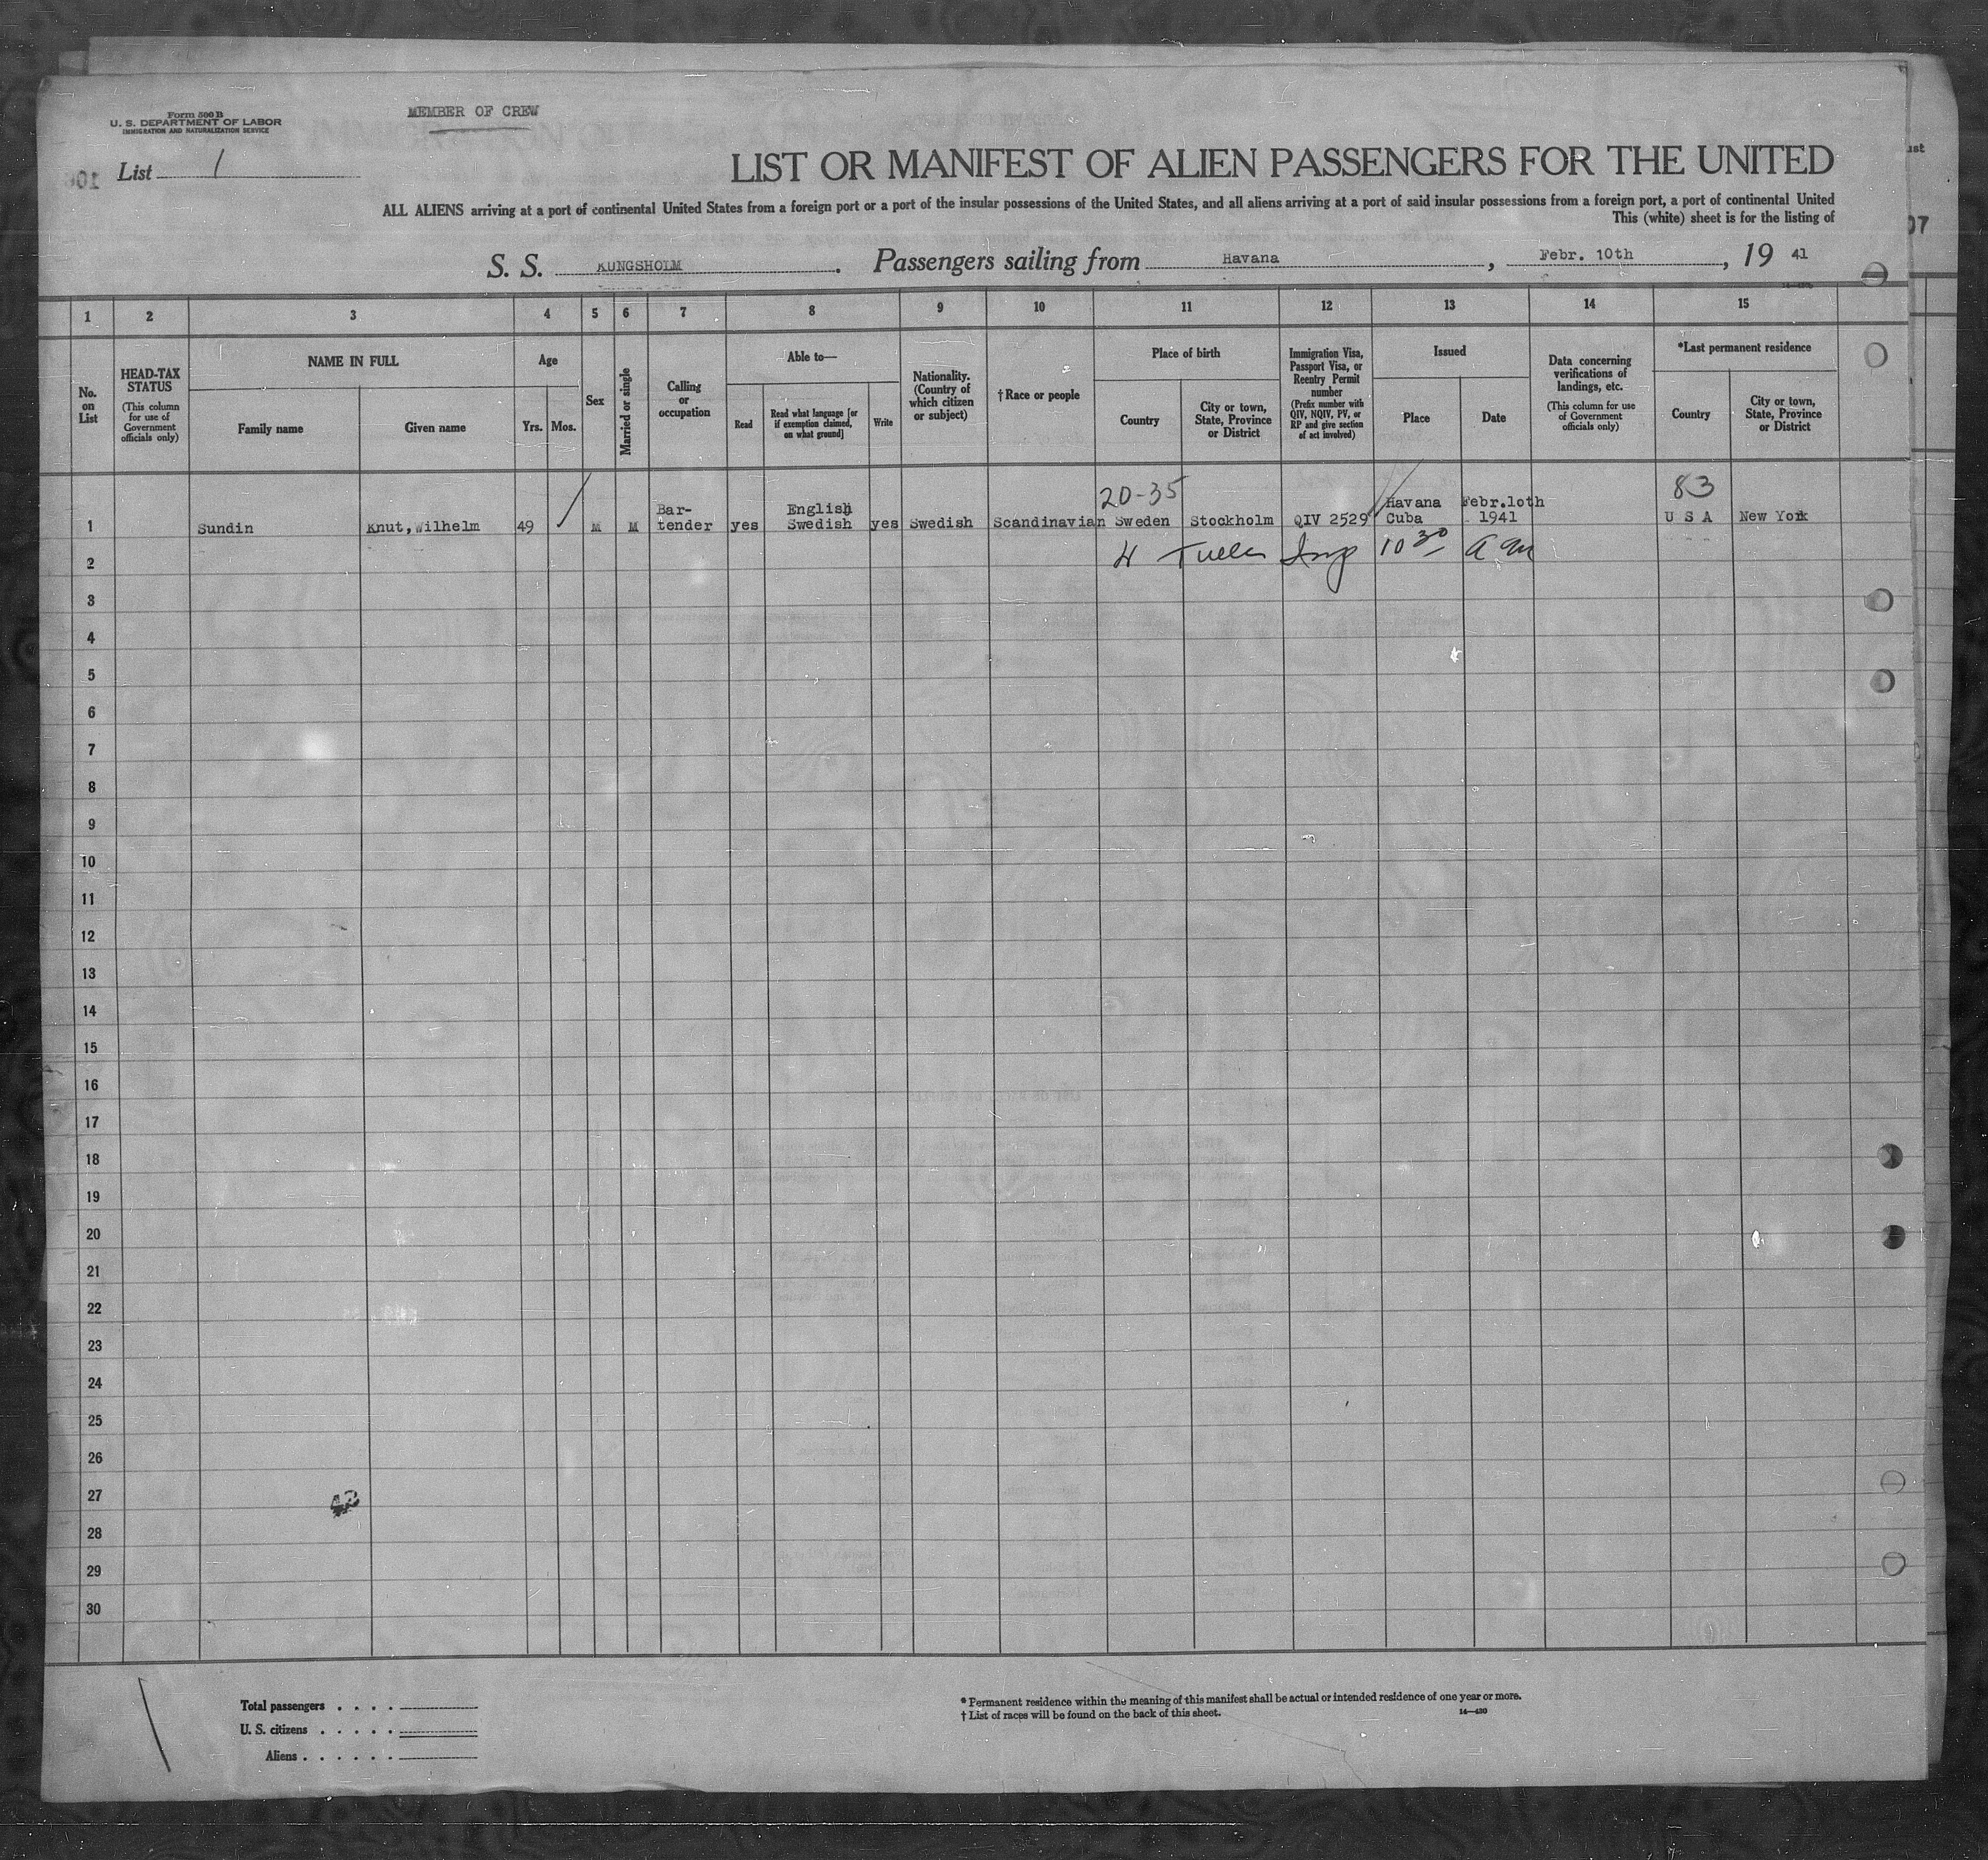 Form 500 B
U. S. DEPARTMENT OF LABOR
IMMIGRATION AND NATURALIZATION SERVICE
MEMBER OF CREW
List 1
LIST OR MANIFEST OF ALIEN PASSENGERS FOR THE UNITED
ALL ALIENS arriving at a port of continental United States from a foreign port or a port of the insular possessions of the United States, and all aliens arriving at a port of said insular possessions from a foreign port, a port of continental United
This (white) sheet is for the listing of
S. S. KUNGSHOLM. Passengers sailing from Havana, Febr. 10th, 19 41
1 2 3 4 5 6 7 8 9 10 11 12 13 14 15
No. on List
HEAD-TAX STATUS
(This column for use of Government officials only)
NAME IN FULL
Family name
Given name
Age
Yrs.
Mos.
Sex
Married or single
Calling or occupation
Able to—
Read
Read what language [or if exemption claimed, on what ground]
Write
Nationality. (Country of which citizen or subject)
† Race or people
Place of birth
Country
City or town, State, Province or District
Immigration Visa, Passport Visa, or Reentry Permit number
(Prefix number with QIV, NQIV, PV, or RP and give section of act involved)
Issued
Place
Date
Data concerning verifications of landings, etc.
(This column for use of Government officials only)
*Last permanent residence
Country
City or town, State, Province or District
20-35
83
1 Sundin Knut,Wilhelm 49 M M Bar-tender yes English Swedish yes Swedish Scandinavian Sweden Stockholm QIV 2529 Havana Cuba Febr.1oth 1941 U S A New York
2
10 30 a m
3
4
5
6
7
8
9
10
11
12
13
14
15
16
17
18
19
20
21
22
23
24
25
26
27
28
29
30
42
Total passengers . . . .
U. S. citizens . . . . .
Aliens . . . . . .
* Permanent residence within the meaning of this manifest shall be actual or intended residence of one year or more.
† List of races will be found on the back of this sheet.
14—430